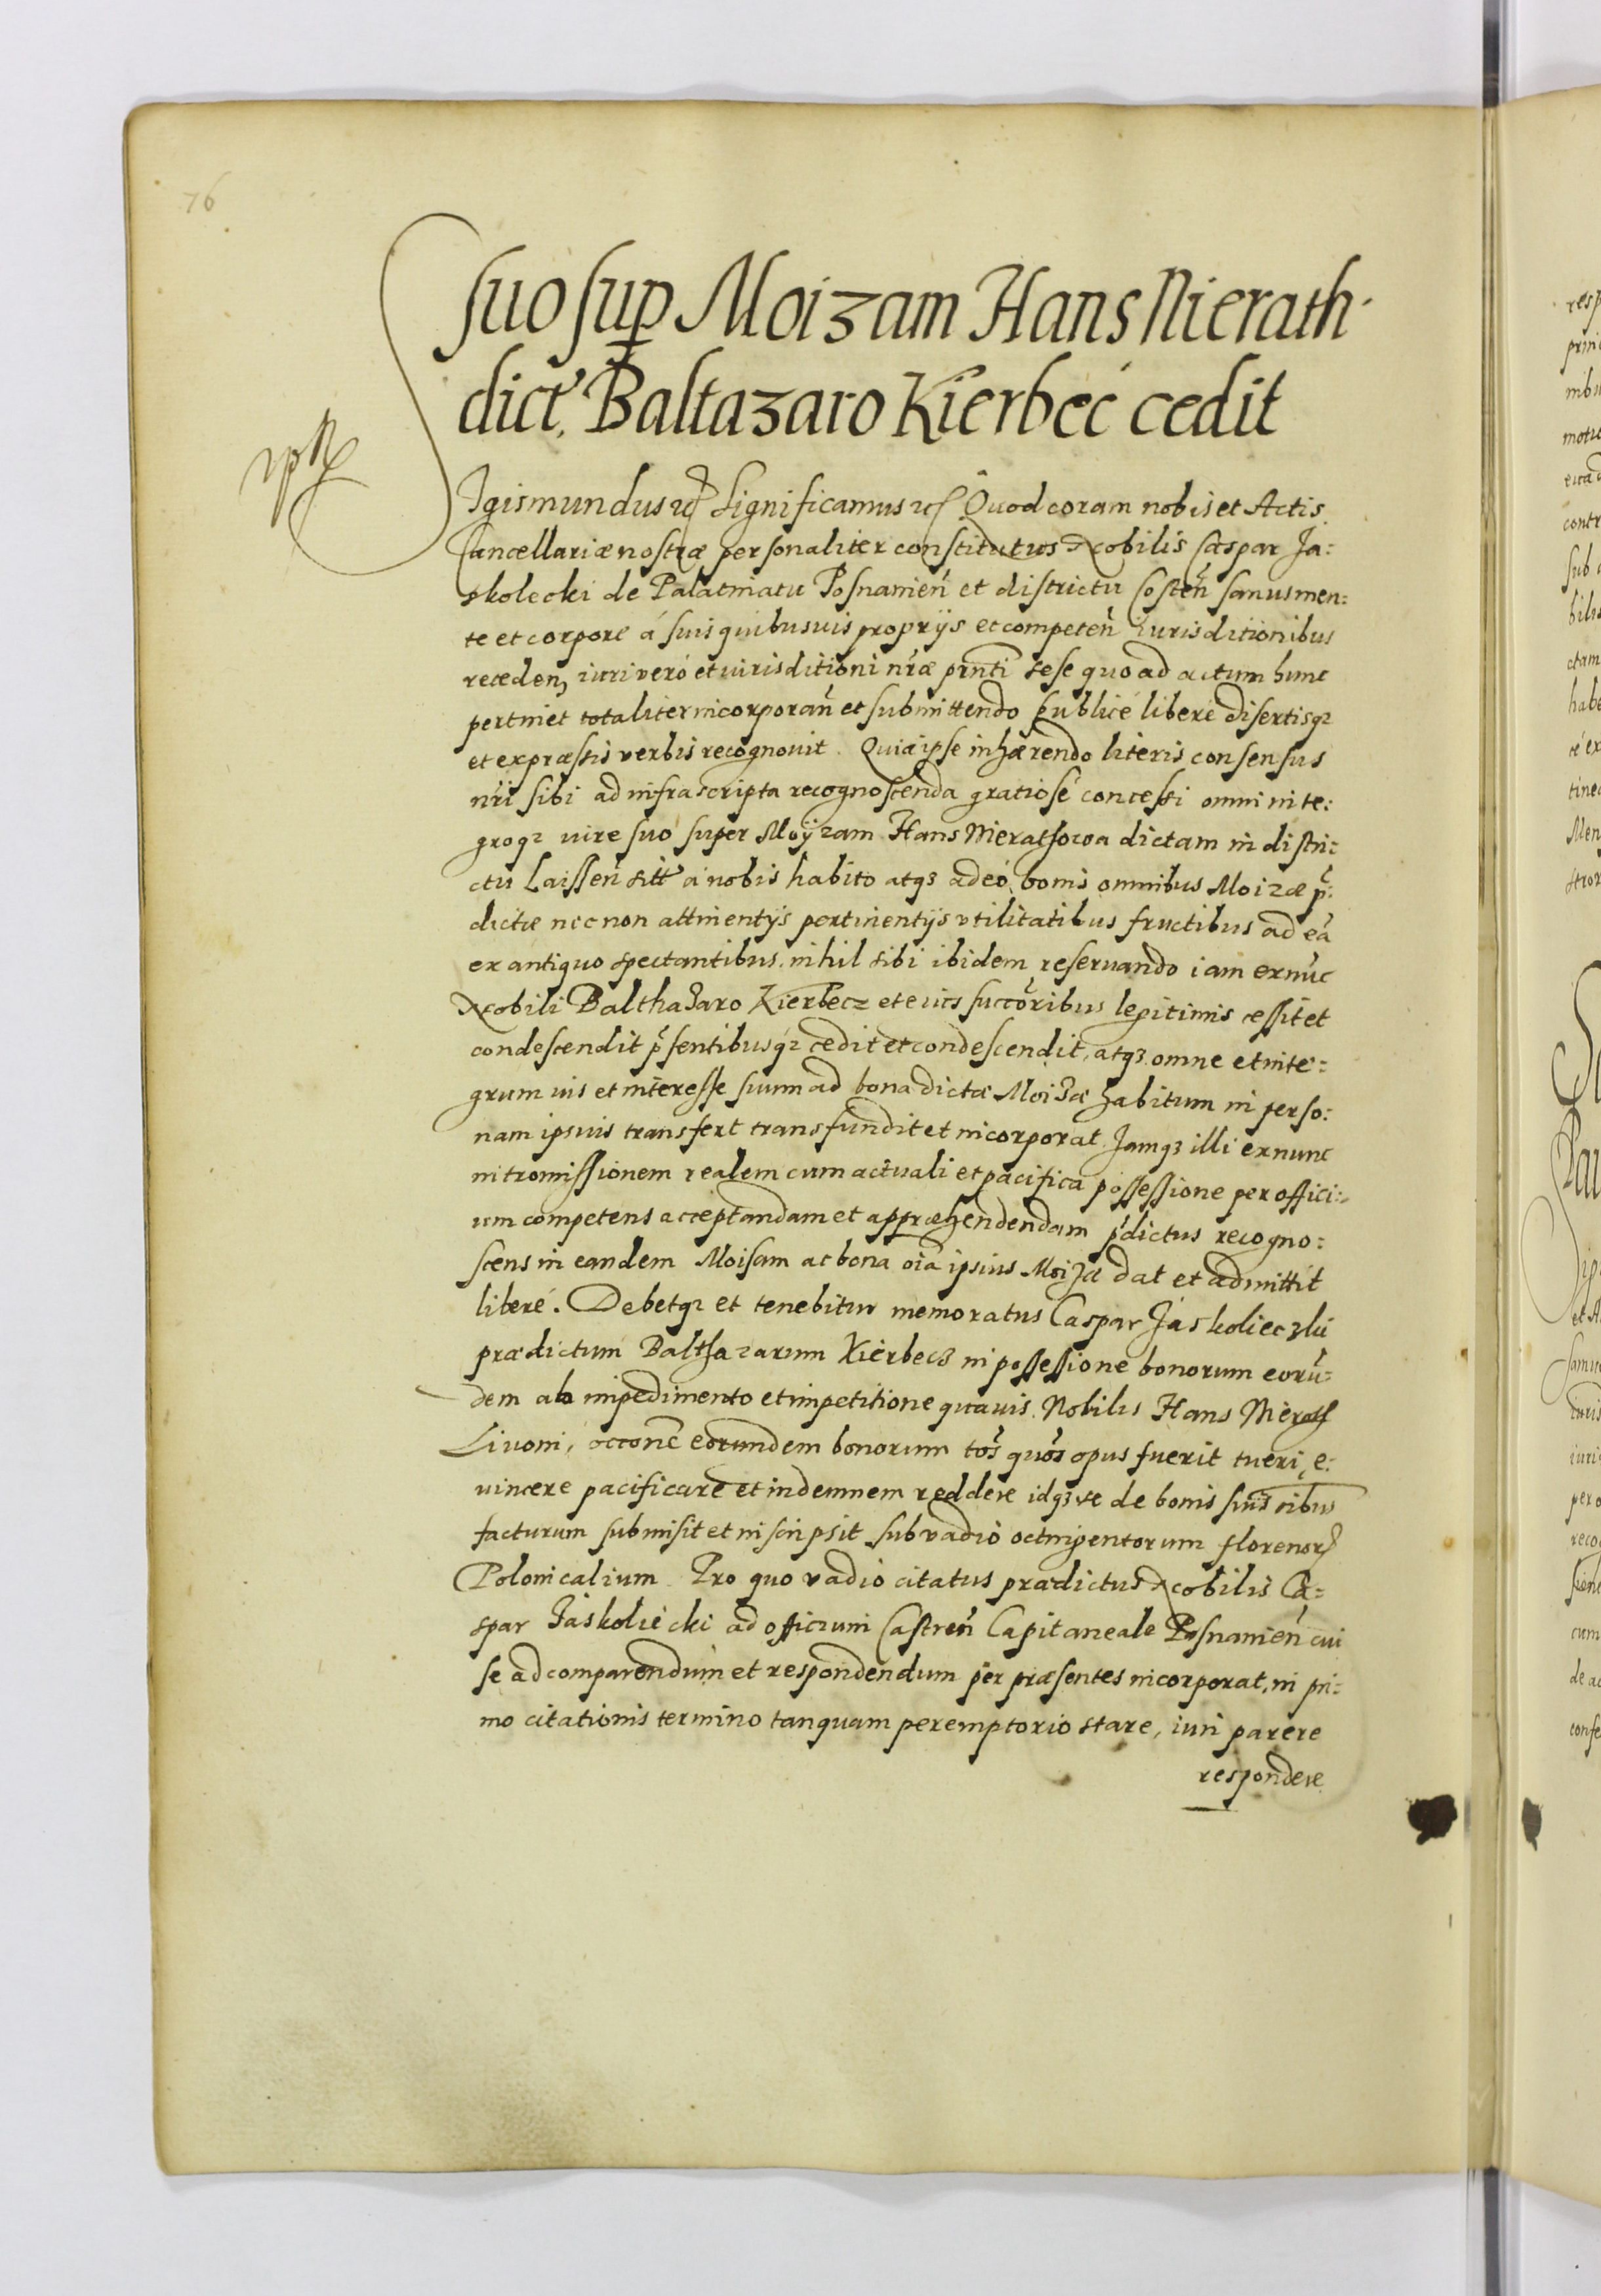 76
suo sup Moizam Hans Nierath.
dict. Baltazaro Kierbec cedit
Sigismundus etc Significamus etc Quod coram nobis et Actis
Cancellariæ nostræ personaliter constitutus Nobilis Caspar Ja:
skolecki de Palatinatu Posnanien̄ et districtu Costen̄ sanus men:
te et corpore á suis quibusuis proprijs et competen̄ iurisditionibus
receden, iuri veró et iurisditioni nr̄æ pn̄ti sese quo ad actum hunc
pertinet totaliter incorporan̄ et submittendo publicé liberé disertisq3
et expræssis verbis recognouit. Quia ipse inhærendo literis consensus
nr̄i sibi ad infrascripta recognoscenda gratiosé concessi omni inte:
groq3 iure suo super Moÿzam Hans Nierathowa dictam in distri:
ctu Laissen̄ sitt á nobis habito atq3 adeó bonis omnibus Moizæ p̄:
dictæ nec non attinentijs pertinentijs vtilitatibus fructibus ad eā
ex antiquo spectantibus, nihil sibi ibidem reseruando iam exnūc
Nobili Balthazaro Kierbecz et eius succōribus legitimis cessit et
condescendit p̄sentibusq3 cedit et condescendit, atq3 omne et inte:
grum ius et interesse suum ad bona dictæ Moizæ habitum in perso:
nam ipsius transfert transfundit et incorporat. Jamq3 illi exnunc
intromissionem realem cum actuali et pacifica possessione per offici:
um competens acceptandam et appræhendendam p̄dictus recogno:
scens in eandem Moisam ac bona oīa ipsius Moizæ dat et admittit
liberé. Debetq3 et tenebitur memoratus Caspar Jaskolieczki
prædictum Balthazarum Kierbecz in possessione bonorum eorū:
dem ab impedimento et impetitione quauis Nobilis Hans Nierath
Liuoni, occōne eorundem bonorum tōs quōs opus fuerit tueri, e:
uincere pacificare et indemnem reddere idq3 se de bonis suis oībus
facturum submisit et inscripsit sub vadio octingentorum florenor
Polonicalium. Pro quo vadio citatus prædictus Nobilis Ca:
spar Jaskoliecki ad officium Castren̄ Capitaneale Posnanien̄ cui
se ad comparendum et respondendum per præsentes incorporat, in pri:
mo citationis termino tanquam peremptorio stare, iuri parere
respondere